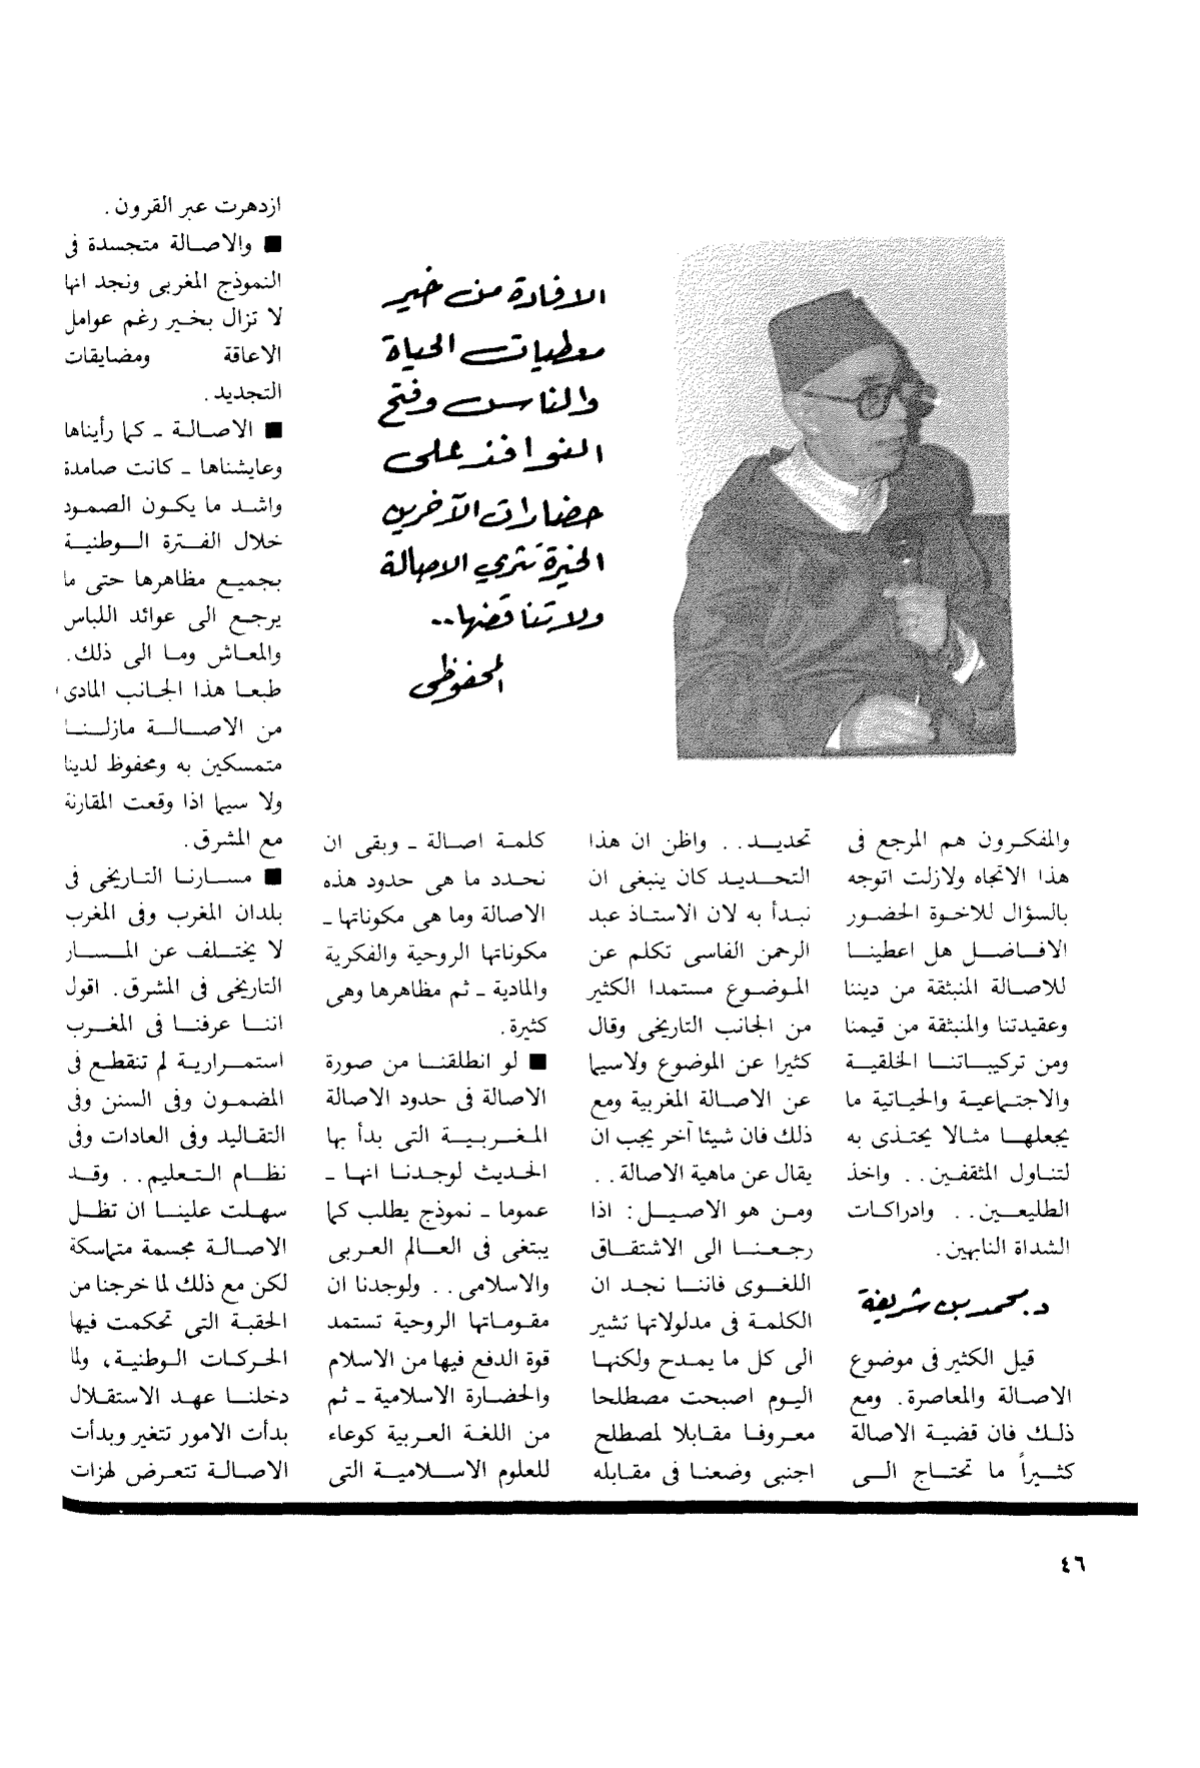 الافادة من خير
معطيات الحياة
والناس وفتح
النوافذ على
حضارات الآخرين
الخيّرة تثري الاصالة
ولا تناقضها..
المحفوظي
والمفكرون هم المرجع فى
هذا الاتجاه ولازلت اتوجه
بالسؤال للاخوة الحضور
الافاضل هل اعطينا
للاصالة المنبثقة من ديننا
وعقيدتنا والمنبثقة من قيمنا
ومن تركيباتنا الخلقية
والاجتماعية والحياتية ما
يجعلها مثالا يحتذى به
لتناول المثقفين.. واخذ
الطليعين.. وادراكات
الشداة النابهين.
د. محمد بن شريفة
قيل الكثير فى موضوع
الاصالة والمعاصرة. ومع
ذلك فان قضية الاصالة
كثيراً ما تحتاج الى
تحديد.. واظن ان هذا
التحديد كان ينبغى ان
نبدأ به لان الاستاذ عبد
الرحمن الفاسى تكلم عن
الموضوع مستمدا الكثير
من الجانب التاريخى وقال
كثيرا عن الموضوع ولاسيما
عن الاصالة المغربية ومع
ذلك فان شيئا آخر يجب ان
يقال عن ماهية الاصالة..
ومن هو الاصيل: اذا
رجعنا الى الاشتقاق
اللغوى فاننا نجد ان
الكلمة فى مدلولاتها تشير
الى كل ما يمدح ولكنها
اليوم اصبحت مصطلحا
معروفا مقابلا لمصطلح
اجنبى وضعنا فى مقابله
كلمة اصالة ـ وبقى ان
نحدد ما هى حدود هذه
الاصالة وما هى مكوناتها ـ
مكوناتها الروحية والفكرية
والمادية ـ ثم مظاهرها وهى
كثيرة.
■ لو انطلقنا من صورة
الاصالة فى حدود الاصالة
المغربية التى بدأ بها
الحديث لوجدنا انها ـ
عموما ـ نموذج يطلب كما
يبتغى فى العالم العربى
والاسلامى.. ولوجدنا ان
مقوماتها الروحية تستمد
قوة الدفع فيها من الاسلام
والحضارة الاسلامية ـ ثم
من اللغة العربية كوعاء
للعلوم الاسلامية التى
ازدهرت عبر القرون.
■ والاصالة متجسدة فى
النموذج المغربى ونجد انها
لا تزال بخير رغم عوامل
الاعاقة ومضايقات
التجديد.
■ الاصالة ـ كما رأيناها
وعايشناها ـ كانت صامدة
واشد ما يكون الصمود
خلال الفترة الوطنية
بجميع مظاهرها حتى ما
يرجع الى عوائد اللباس
والمعاش وما الى ذلك.
طبعا هذا الجانب المادى
من الاصالة مازلنا
متمسكين به ومحفوظ لدينا
ولا سيما اذا وقعت المقارنة
مع المشرق.
■ مسارنا التاريخى فى
بلدان المغرب وفى المغرب
لا يختلف عن المسار
التاريخى فى المشرق. اقول
اننا عرفنا فى المغرب
استمرارية لم تنقطع فى
المضمون وفى السنن وفى
التقاليد وفى العادات وفى
نظام التعليم.. وقد
سهلت علينا ان تظل
الاصالة مجسمة متماسكة
لكن مع ذلك لما خرجنا من
الحقبة التى تحكمت فيها
الحركات الوطنية، ولما
دخلنا عهد الاستقلال
بدأت الامور تتغير وبدأت
الاصالة تتعرض لهزات
٤٦